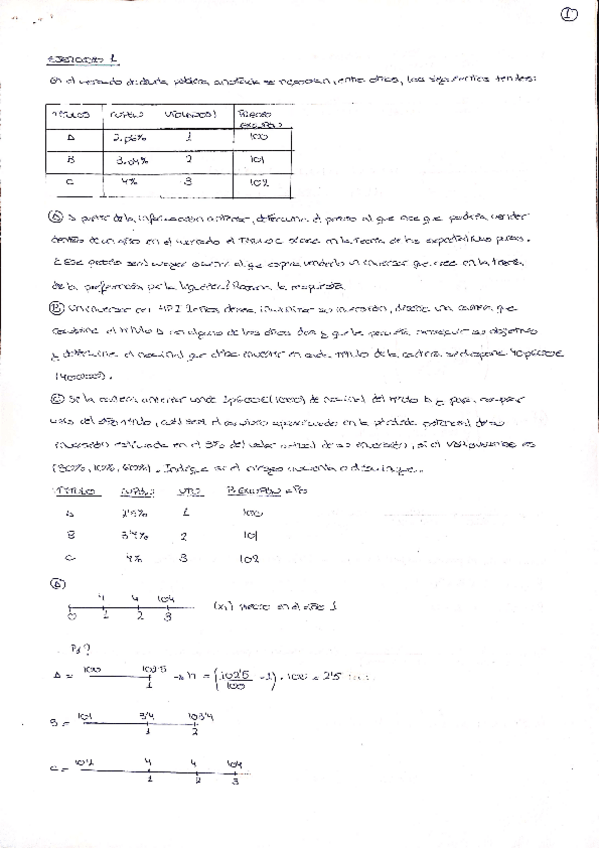 1
EJERCICIO 1
En el mercado de deuda pública española se negocian, entre otros, los siguientes títulos:
TÍTULOS CUPÓN VTO (AÑOS) PRECIO
A 1 100
B 2 101
C 4% 3 102
A A partir de la información anterior, determina el precio al que cree que podría vender
dentro de un año en el mercado el Título C si cree en la teoría de las expectativas puras.
¿Ese precio será mayor o menor al que espera venderlo un inversor que cree en la teoría
de la preferencia por la liquidez? Razona la respuesta
B Un inversor con HPI 2 años desea inmunizar su inversión, diseñe una cartera que
combine el título B con alguno de los otros dos y que le permita conseguir su objetivo
y determine el nominal que debe invertir en cada título de la cartera si dispone
C Si la cartera anterior vende de nominal del título B y para comprar
del otro título, cuál será el en la pérdida potencial de su
inversión estimada en el 5% del valor actual de su inversión, si el es
(90%, 10%, . Indique si el riesgo aumenta o disminuye.
TÍTULO CUPÓN VTO P. = Po
A 2'5% 1 100
B 3'4% 2 101
C 4% 3 102
A
4 4 104
0 1 2 3 en el año 1
P1?
A = 100 102'5 → r1 = (102'5/100 - 1) · 100 = 2'5
1
B = 101 3'4 103'4
1 2
C = 102 4 4 104
1 2 3